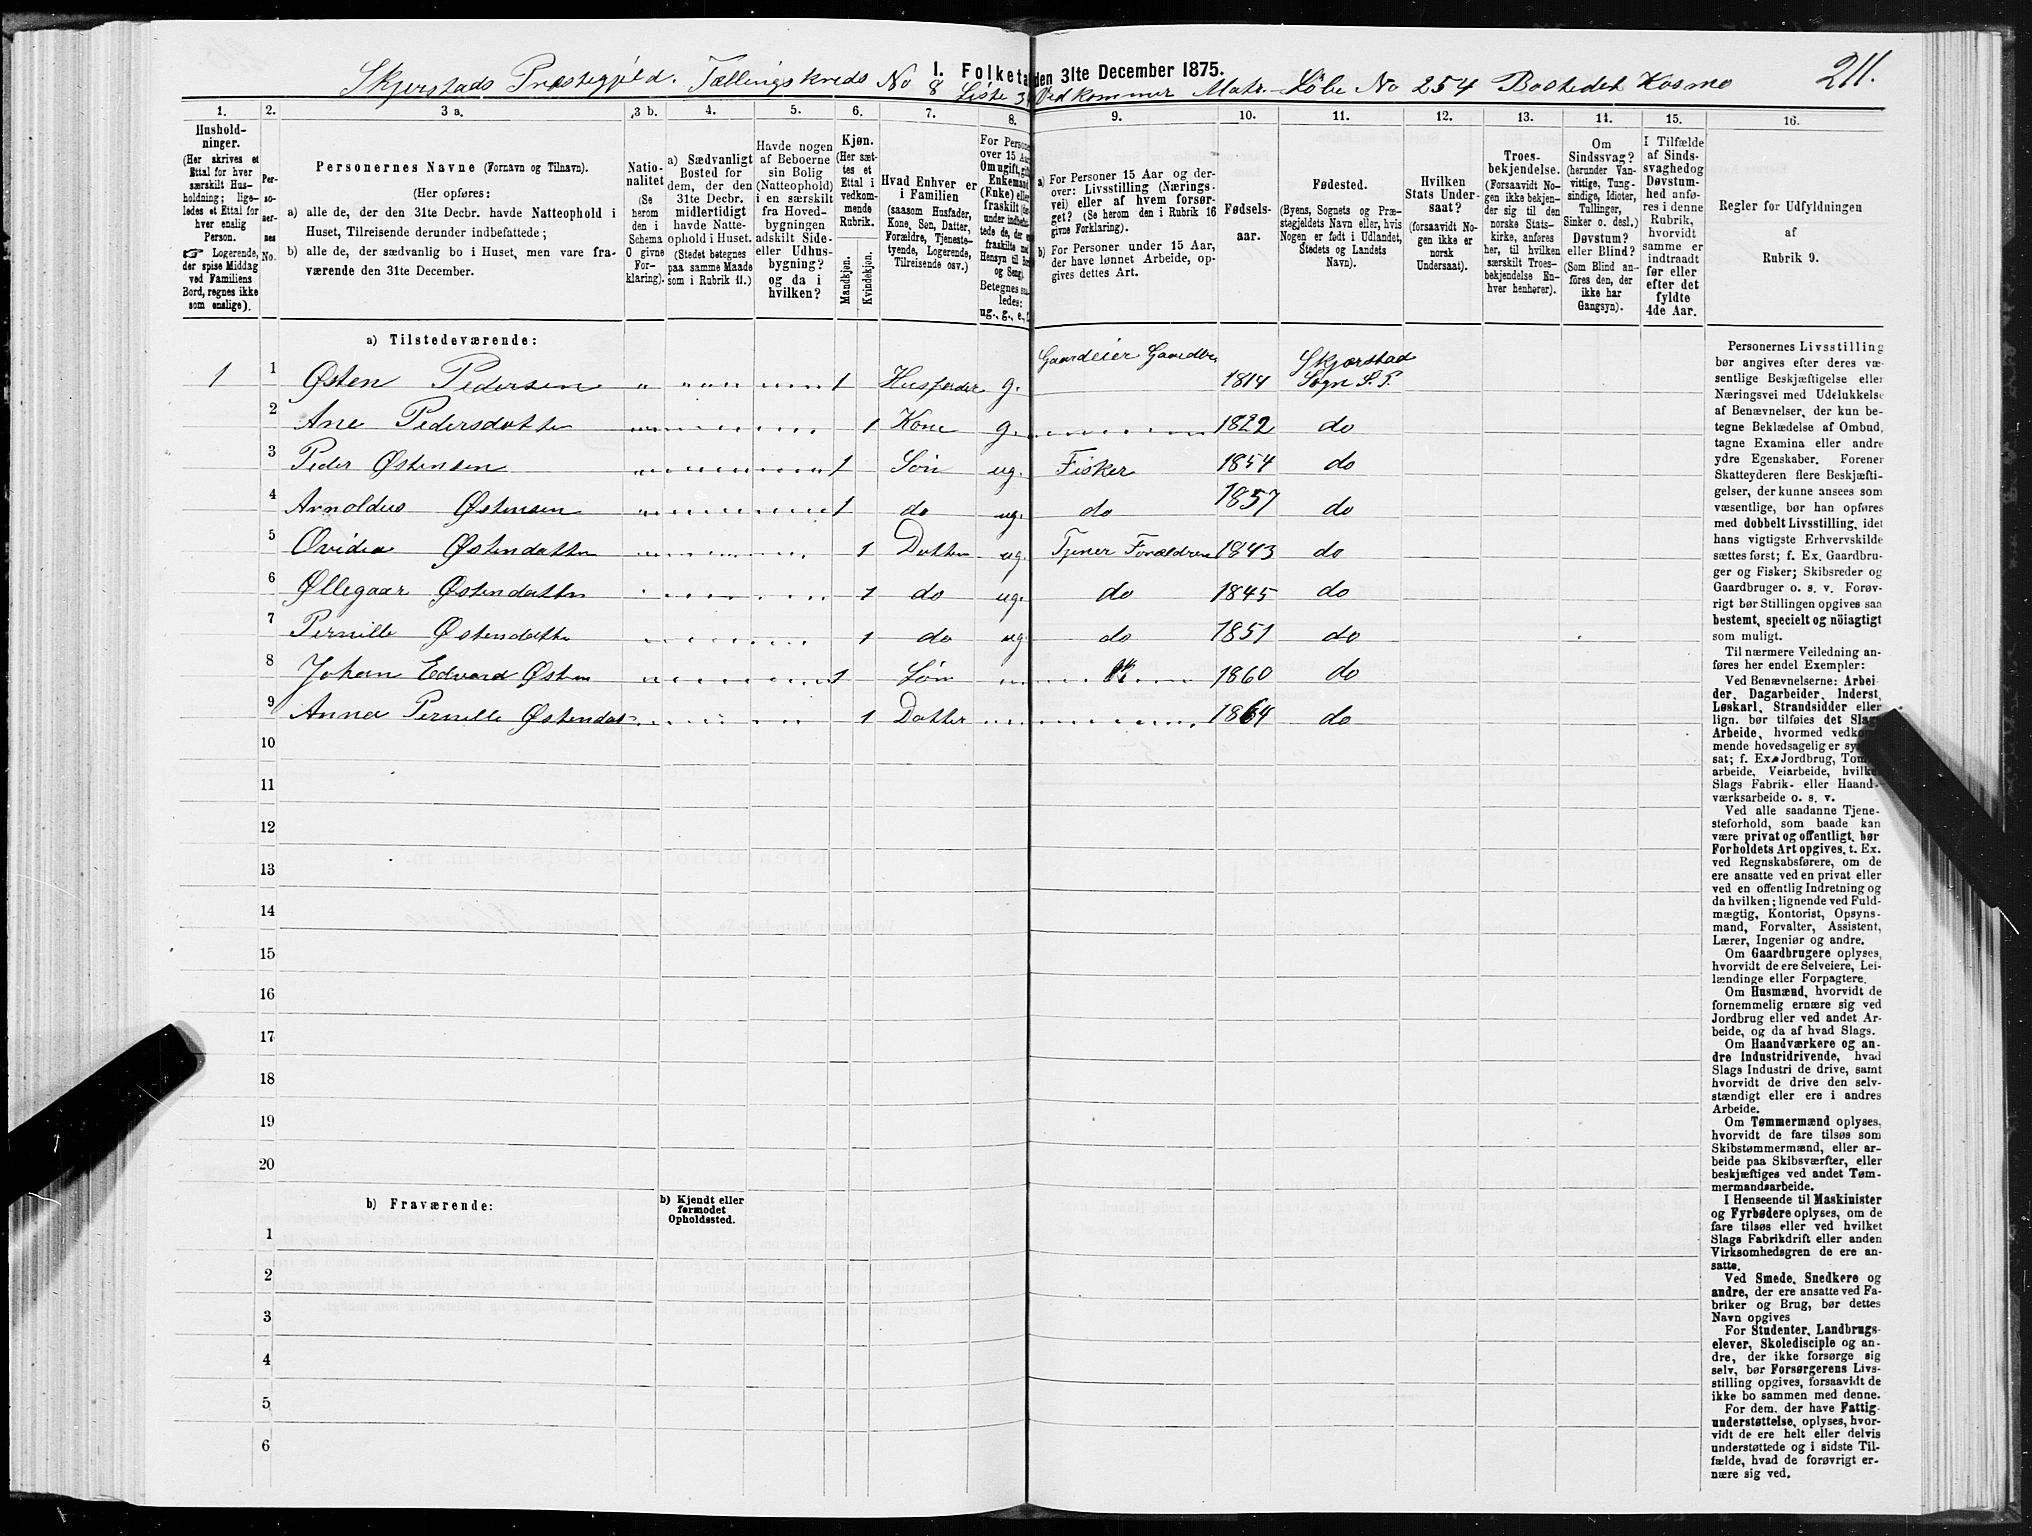 211.
I. Folketa den 31te December 1875.
Skjerstads Præstegjeld. Tællingskreds No 8 Liste 3 Vedkommer Matr. Løbe No 254 Bostedet Kosmo
1. 2. 3 a. 3 b. 4. 5. 6. 7. 8. 9. 10. 11. 12. 13. 14. 15. 16.
Hushold-
ninger.
(Her skrives et
Ettal for hver
særskilt Hus-
holdning; lige-
ledes et Ettal for
hver enslig
Person.
☞ Logerende,
der spise Middag
ved Familiens
Bord, regnes ikke
som enslige).
Per-
so-
ner-
nes
No.
Personernes Navne (Fornavn og Tilnavn).
(Her opføres:
a) alle de, der den 31te Decbr. havde Natteophold i
Huset, Tilreisende derunder indbefattede;
b) alle de, der sædvanlig bo i Huset, men vare fra-
værende den 31te December.
Natio-
nalitet
(Se
herom
den i
Schema
O givne
For-
klaring).
a) Sædvanligt
Bosted for
dem, der den
31te Decbr.
midlertidigt
havde Natte-
ophold i Huset.
(Stedet betegnes
paa samme Maade
som i Rubrik 11.)
Havde nogen
af Beboerne
sin Bolig
(Natteophold)
i en særskilt
fra Hoved-
bygningen
adskilt Side-
eller Udhus-
bygning?
og da i
hvilken?
Kjøn.
(Her sæt-
tes et
Ettal i
vedkom-
mende
Rubrik.
Mandkjøn.
Kvindekjøn.
Hvad Enhver er
i Familien
(saasom Husfader,
Kone, Søn, Datter,
Forældre, Tjeneste-
tyende, Logerende,
Tilreisende osv.)
For Person
over 15 Aar
Om ugift, gift
Enkemand
(Enke) eller
fraskilt (der-
under indbefat-
tede de, der ere
fraskilte med
Hensyn til Bord
og Seng).
Betegnes saa-
ledes:
ug., g., e.,
a) For Personer 15 Aar og der-
over: Livsstilling (Nærings-
vei) eller af hvem forsør-
get? (Se herom den i Rubrik 16
givne Forklaring).
b) For Personer under 15 Aar,
der have lønnet Arbeide, op-
gives dettes Art.
Fødsels-
aar.
Fødested.
(Byens, Sognets og Præ-
stegjeldets Navn eller, hvis
Nogen er født i Udlandet,
Stedets og Landets
Navn).
Hvilken
Stats Under-
saat?
(forsaavidt No-
gen ikke er
norsk
Undersaat).
Troes-
bekjendelse.
(Forsaavidt No-
gen ikke bekjen-
der sig til den
norske Stats-
kirke, anføres
her, til hvilken
særskilt Troes-
bekjendelse En-
hver henhører).
Om
Sindssvag?
(herunder Van-
vittige, Tung-
sindige, Idioter,
Tullinger,
Sinker o. desl.)
Døvstum?
eller Blind?
(Som Blind an-
føres den, der
ikke har
Gangsyn).
I Tilfælde
af Sinds-
svaghedog
Døvstum-
hed anfø-
res i denne
Rubrik,
hvorvidt
samme er
indtraadt
før eller
efter det
fyldte
4de Aar.
Regler for Udfyldningen
af
Rubrik 9.
a) Tilstedeværende:
1 1 Østen Pedersen 1 Husfader g. Gaardeier Gaardbr. 1814 Skjerstad Sogn S. P.
2 Ane Pedersdatter 1 Kone g. 1822 do
3 Peder Østensen 1 Søn ug. Fisker 1854 do
4 Arnoldus Østensen 1 do ug. do 1857 do
5 Ovidia Østendatter 1 Datter ug. Tjener Forældrene 1843 do
6 Øllegaar Østendatter 1 do ug. do 1845 do
7 Pernille Østendatter 1 do ug. do 1851 do
8 Johan Edvard Østen 1 Søn 1860 do
9 Anna Pernille Østendat 1 Datter 1864 do
10
11
12
13
14
15
16
17
18
19
20
b) Fraværende:
b) Kjendt eller
formodet
Opholdssted.
1
2
3
4
5
6
Personernes Livsstilling
bør angives efter deres væ-
sentlige Beskjæftigelse eller
Næringsvei med Udelukkelse
af Benævnelser, der kun be-
tegne Beklædelse af Ombud,
tagne Examina eller andre
ydre Egenskaber. Forener
Skatteyderen flere Beskjæfti-
gelser, der kunne ansees som
væsentlige, bør han opføres
med dobbelt Livsstilling, idet
hans vigtigste Erhvervskilde
sættes først; f. Ex. Gaardbru-
ger og Fisker; Skibsreder og
Gaardbruger o. s. v. Forøv-
rigt bør Stillingen opgives saa
bestemt, specielt og nöiagtigt
som muligt.
Til nærmere Veiledning an-
føres her endel Exempler:
Ved Benævnelserne: Arbei-
der, Dagarbeider, Inderst,
Løskarl, Strandsidder eller
lign. bør tilføies det Slags
Arbeide, hvormed vedkom-
mende hovedsagelig er sy
sat; f. Ex. Jordbrug, Tøm
arbeide, Veiarbeide, hvilket
Slags Fabrik- eller Haand-
værksarbeide o. s. v.
Ved alle saadanne Tjene-
steforhold, som baade kan
være privat og offentligt, bør
Forholdets Art opgives, t. Ex.
ved Regnskabsførere, om de
ere ansatte ved en privat eller
ved en offentlig Indretning og
da hvilken; lignende ved Fuld-
mægtig, Kontorist, Opsyns-
mand, Forvalter, Assistent,
Lærer, Ingeniør og andre.
Om Gaardbrugere oplyses,
hvorvidt de ere Selveiere, Lei-
lændinge eller Forpagtere.
Om Husmænd, hvorvidt de
fornemmelig ernære sig ved
Jordbrug eller ved andet Ar-
beide, og da af hvad Slags.
Om Haandværkere og an-
dre Industridrivende, hvad
Slags Industri de drive, samt
hvorvidt de drive den selv-
stændigt eller ere i andres
Arbeide.
Om Tømmermænd oplyses,
hvorvidt de fare tilsøs som
Skibstømmermænd, eller ar-
beide paa Skibsværfter, eller
beskjæftiges ved andet Tøm-
mermandsarbeide.
I Henseende til Maskinister
og Fyrbødere oplyses, om de
fare tilsøs eller ved hvilket
Slags Fabrikdrift eller anden
Virksomhedsgren de ere an-
satte.
Ved Smede, Snedkere og
andre, der ere ansatte ved Fa-
briker og Brug, bør dettes
Navn opgives
For Studenter, Landbrugs-
elever, Skoledisciple og an-
dre, der ikke forsørge sig
selv, bør Forsørgerens Livs-
stilling opgives, forsaavidt de
ikke bo sammen med denne.
For dem, der have Fattig-
understøttelse, oplyses, hvor-
vidt de ere helt eller delvis
understøttede og i sidste Til-
fælde, hvad de forøvrigt er-
nære sig ved.